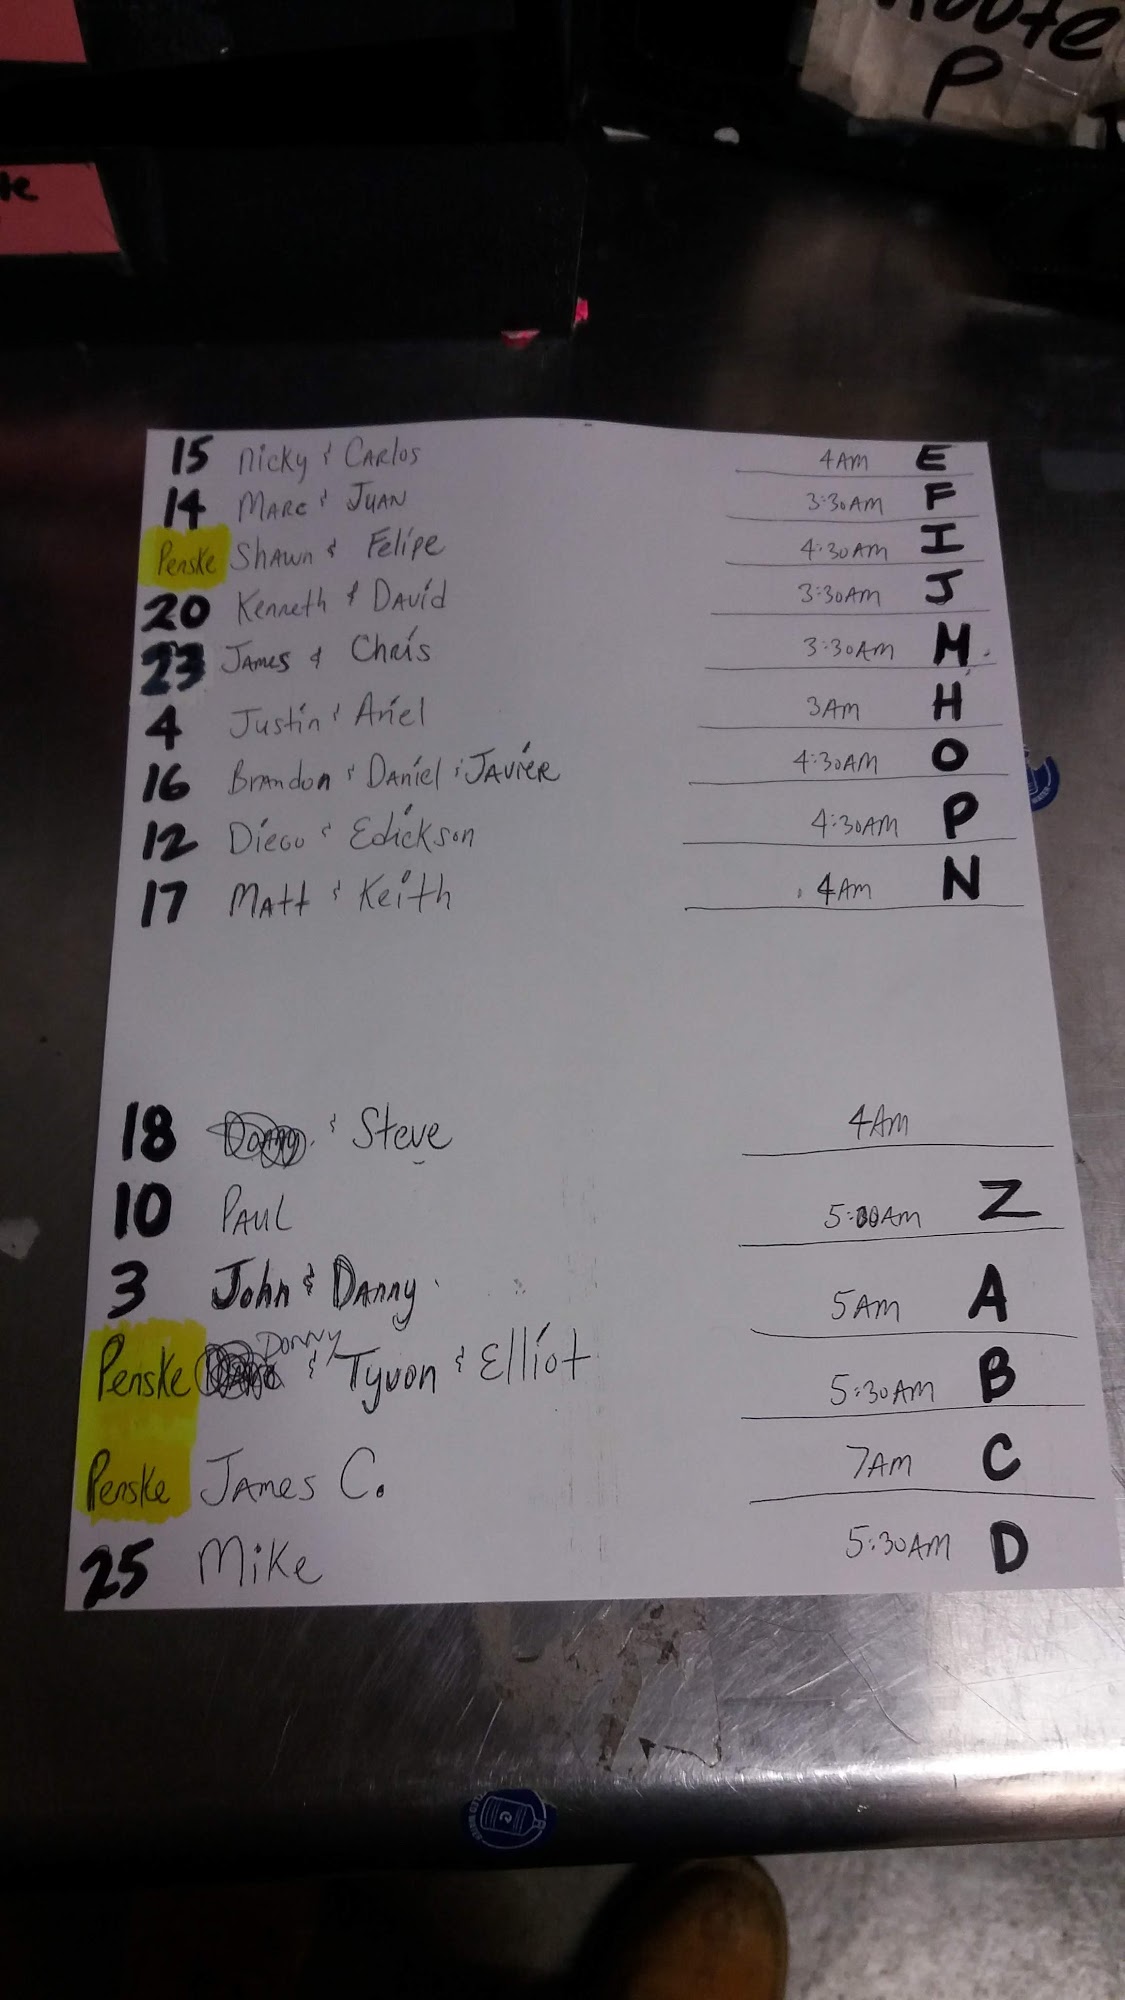 Route
P
te
15 Nicky & Carlos 4AM E
14 Marc & Juan 3:30AM F
Penske Shawn & Felipe 4:30AM I
20 Kenneth & David 3:30AM J
23 James & Chris 3:30AM M
4 Justin & Ariel 3AM H
16 Brandon & Daniel & Javier 4:30AM O
12 Diego & Edickson 4:30AM P
17 Matt & Keith 4AM N
18 & Steve 4AM
10 Paul 5:00AM Z
3 John & Danny 5AM A
Penske Donny & Tyvon & Elliot 5:30AM B
Penske James C. 7AM C
25 Mike 5:30AM D